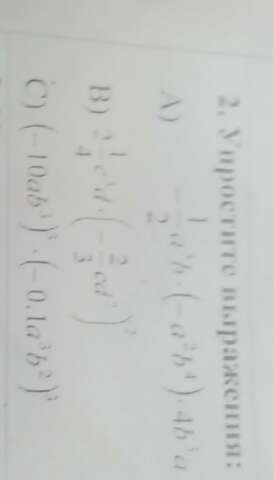 2. Упростите выражения:
A) -1/2 a³b·(-a²b⁴)·4b³a
B) 2 1/4 c³d·(-2/3 cd²)²
C) (-10ab³)³·(-0.1a³b²)³